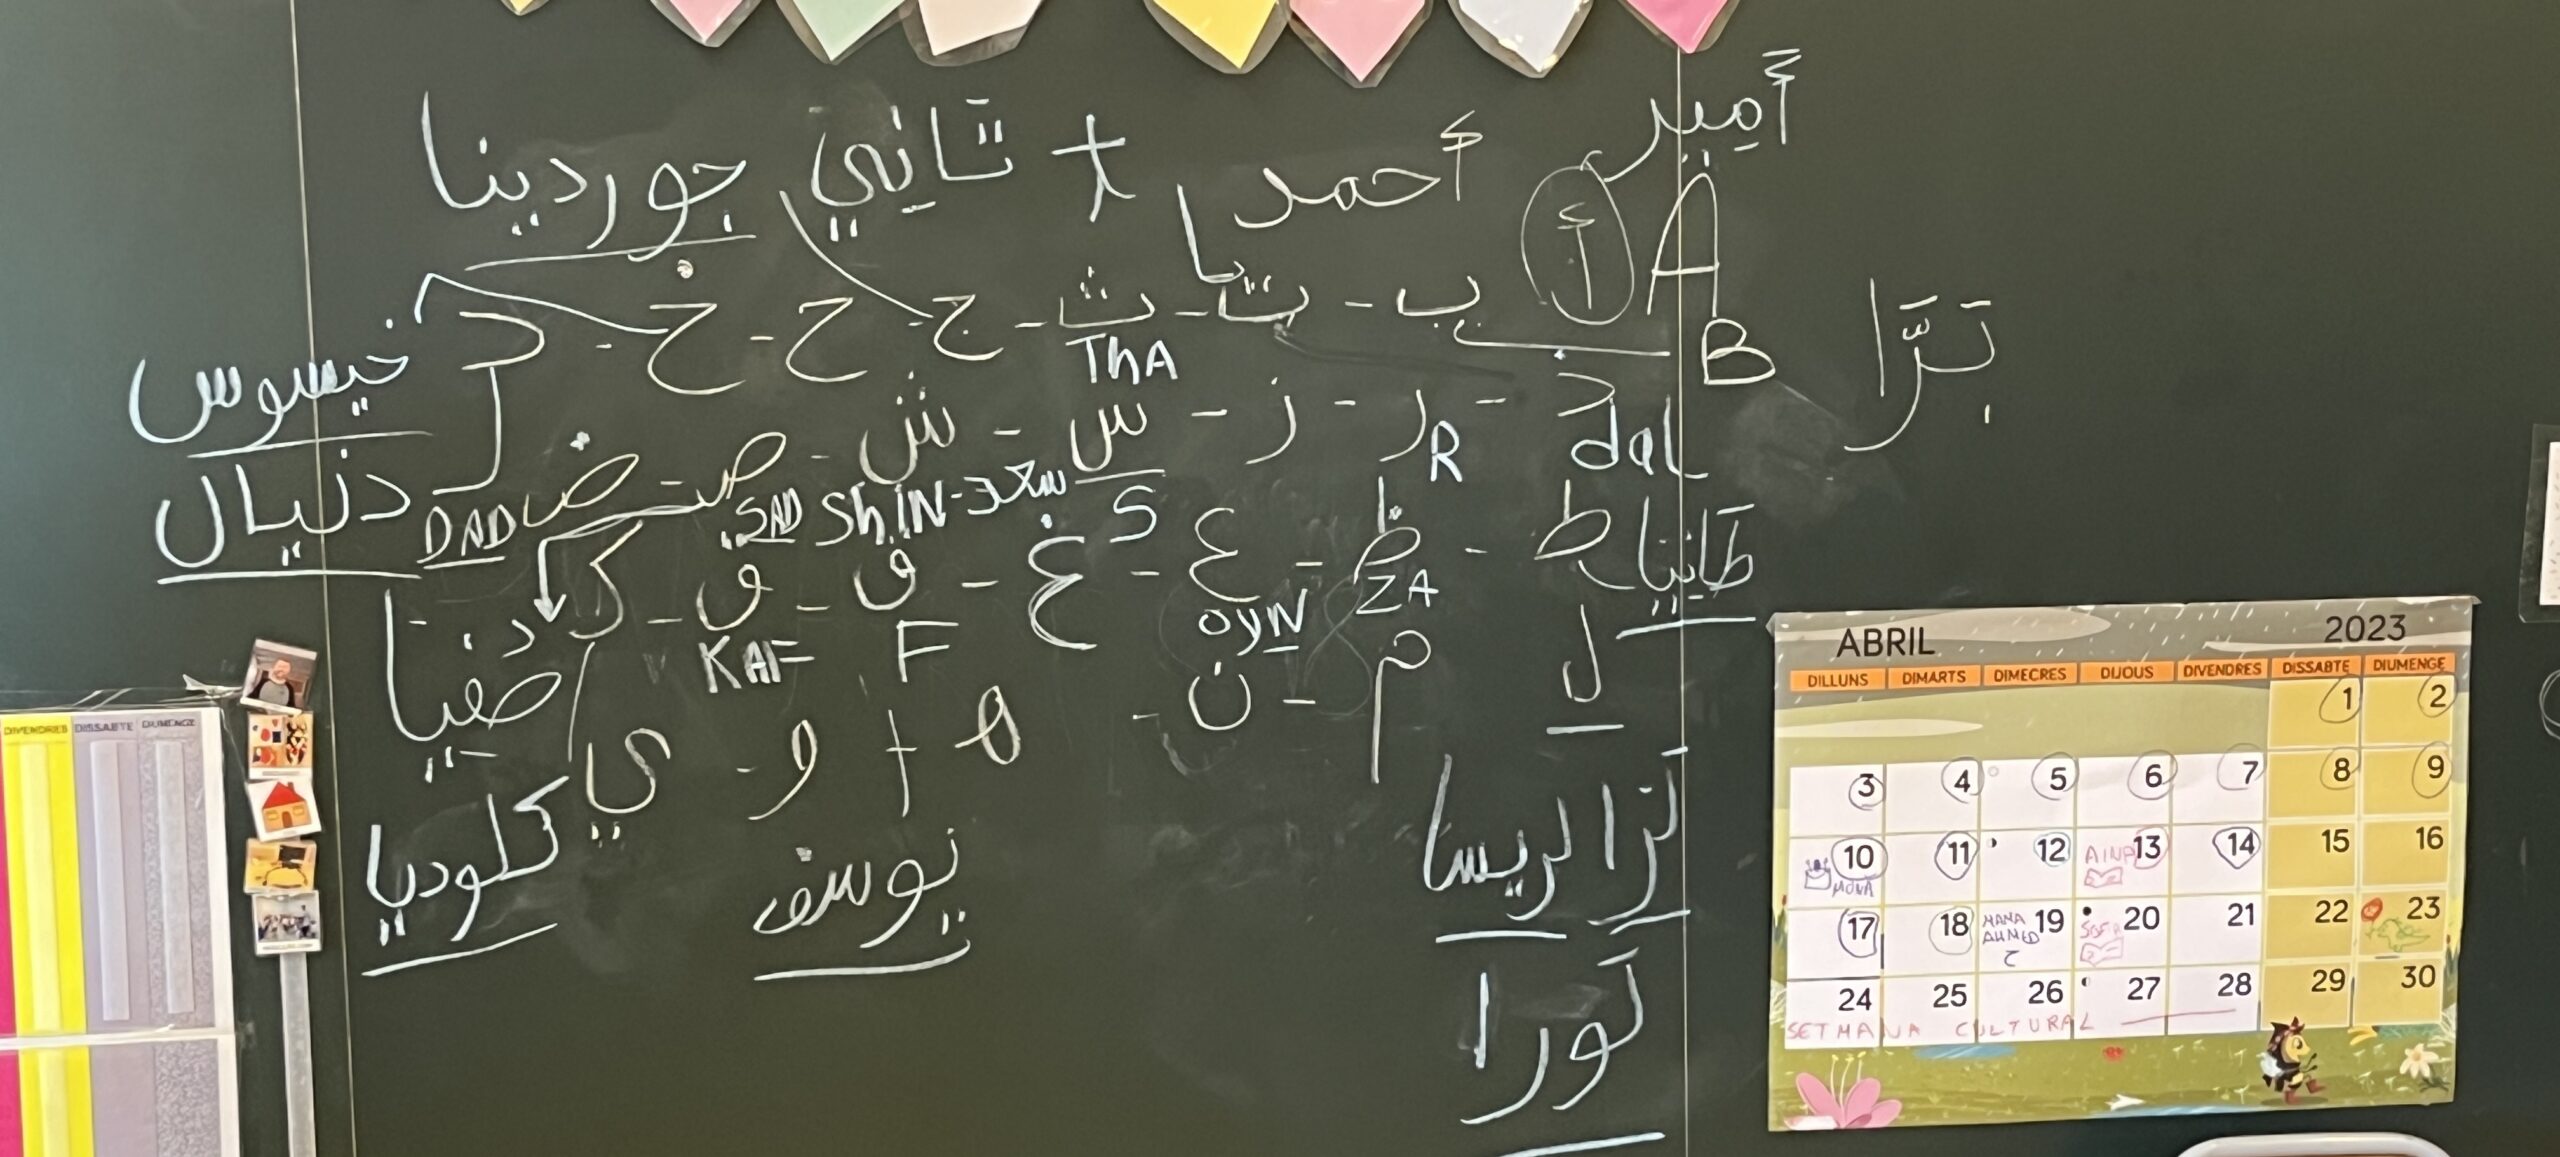 أَمِير
أحمد + تَاني جوردينا
أ A
ب - تـ - ث - ج - ح - خ - د
تا
ThA
B
بَرَّا
خيسوس
ذ - ر - ز - س - ش - ص - ض
dal R S ShIN SAD DAD
دنيال
طَانيا
ط - ظ - ع - غ - ف - ق - ك
ZA OYN F KAF
ل م - ن - ه + و - ي
صفيا
لَرَا لريسا
يوسف
كلوديا
لَورا
ABRIL 2023
DILLUNS DIMARTS DIMECRES DIJOUS DIVENDRES DISSABTE DIUMENGE
1 2
3 4 5 6 7 8 9
10 11 12 13 14 15 16
MONA AINA
17 18 19 20 21 22 23
MAMA AHMED SOFIA
24 25 26 27 28 29 30
SETMANA CULTURAL
DIVENDRES DISSABTE DIUMENGE